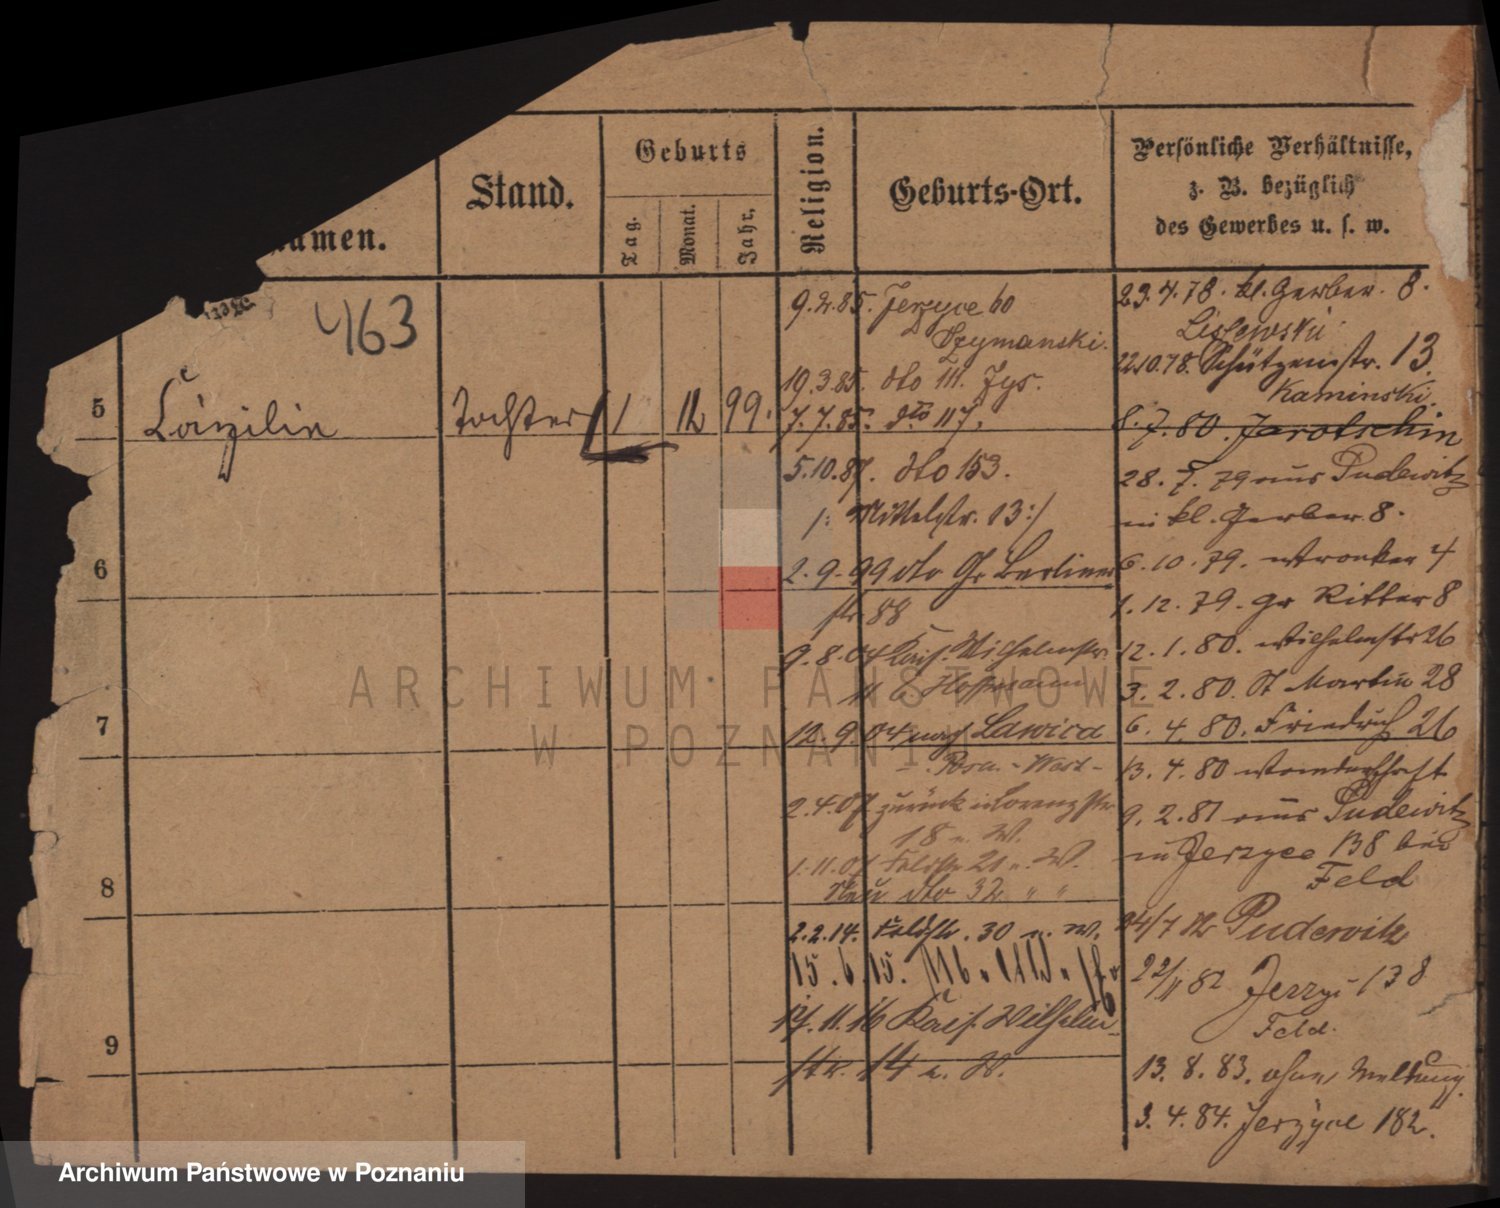 Namen.
Stand.
Geburts
Tag.
Monat.
Jahr,
Religion.
Geburts-Ort.
Persönliche Verhältnisse,
z. B. bezüglich
des Gewerbes u. s. w.
463
5
Cäzilie
Tochter
11
12
99.
6
7
8
9
9.2.85. Jerzyce 60
Szymanski.
19.3.85. dto 111. Jys.
7.7.85. dto 117.
5.10.87. dto 153.
/: Mittelstr. 13 :/
2.9.99 dto Gr Berliner
str. 88
9.8.04 Kais. Wilhelmstr.
11 b. Hoffmann
12.9.04 nach Lawica
- Posen - West -
2.4.07 zurück in Lorenzstr
18 u. W.
1.11.07 Feldstr 21 u. W.
Neu dto 32 " "
2.2.14. Feldstr. 30 u. W.
15.6.15.
17.11.16 Kais. Wilhelm-
str. 14 u. W.
23.4.78. kl. Gerber. 8.
Lislewski
22.10.78. Schützenstr. 13
Kaminski.
8.7.80. Jarotschin
28.7.79 aus Pudewitz
in kl. Gerber 8.
6.10.79. Wronker 4
1.12.79. gr Ritter 8
12.1.80. Wilhelmstr 26
3.2.80. St Martin 28
6.4.80. Friedrich 26
13.4.80 Wanderschaft
9.2.81 aus Pudewitz
in Jerzyce 138 bei
Feld
24/7 82 Pudewitz
22/11 82 Jerzyc 138
Feld.
13.8.83. ohne Meldung.
3.4.84. Jerzyce 182.
ARCHIWUM PAŃSTWOWE
W POZNANIU
Archiwum Państwowe w Poznaniu